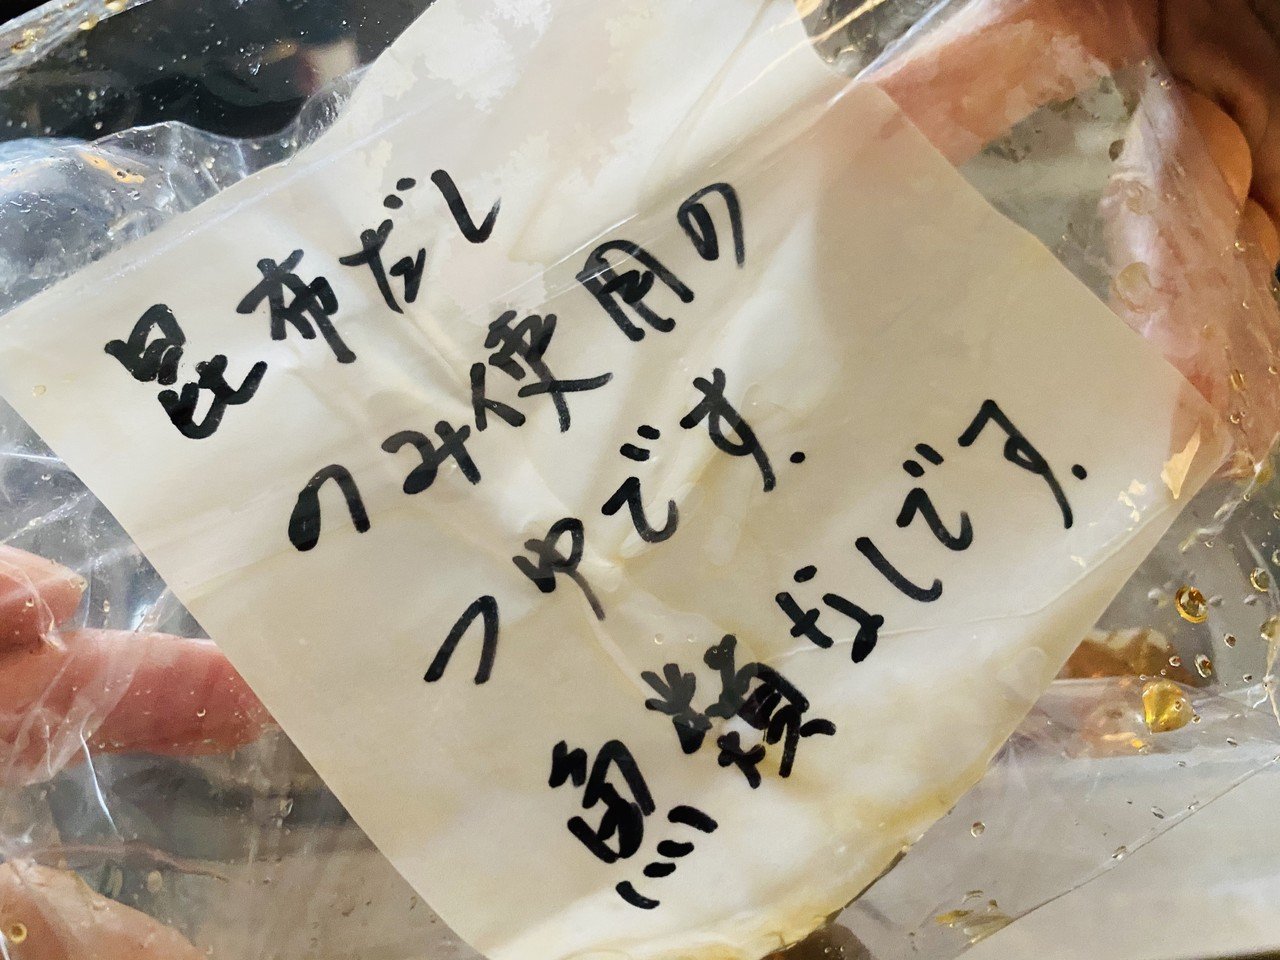 昆布だし
のみ使用の
つゆです.
魚類なしです.